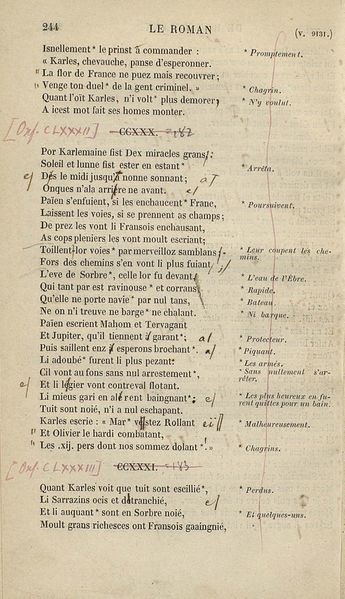 244 LE ROMAN (v. 9131.)
Isnellement* le prinst à commander : * Promptement.
« Karles, chevauche, panse d'esperonner.
" La flor de France ne puez mais recouvrer;
" Venge ton duel* de la gent criminel. » * Chagrin.
Quant l'oït Karles, n'i volt* plus demorer, * N'y voulut.
A icest mot fait ses homes monter.
[Oxf. CLXXXII] CCXXX. 182
Por Karlemaine fist Dex miracles grans,
Soleil et lunne fist ester en estant* * Arrêta.
Dès le midi jusqu'à nonne sonnant;
Onques n'ala arriére ne avant.
Païen s'enfuient, si les enchaucent* Franc, * Poursuivent.
Laissent les voies, si se prennent as champs;
De prez les vont li Fransois enchausant,
As cops pleniers les vont moult escriant;
Toillent lor voies* par merveilloz samblans, * Leur coupent les che-
mins.
Fors des chemins s'en vont li plus fuiant,
L'eve de Sorbre*, celle lor fu devant, * L'eau de l'Èbre.
Qui tant par est ravinouse* et corrans, * Rapide.
Qu'elle ne porte navie* par nul tans, * Bateau.
Ne on n'i treuve ne barge* ne chalant. * Ni barque.
Païen escrient Mahom et Tervagant
Et Jupiter, qu'il tiennent à garant*; * Protecteur.
Puis saillent enz à esperons brochant*. * Piquant.
Li adoubé* furent li plus pezant: * Les armés.
Cil vont au fons sans nul arrestement*, * Sans nullement s'ar-
rêter.
Et li légier vont contreval flotant.
Li mieus gari en alerent baingnant*; * Les plus heureux en fu-
rent quittes pour un bain.
Tuit sont noié, n'i a nul eschapant.
Karles escrie : « Mar* veistez Rollant * Malheureusement.
" Et Olivier le hardi combatant,
" Les .xij. pers dont nos sommez dolant*. » * Chagrins.
[Oxf. CLXXXIII] CCXXXI. 183
Quant Karles voit que tuit sont escillié*, * Perdus.
Li Sarrazins ocis et detranchié,
Et li auquant* sont en Sorbre noié, * Et quelques-uns.
Moult grans richesces ont Fransois gaaingnié,